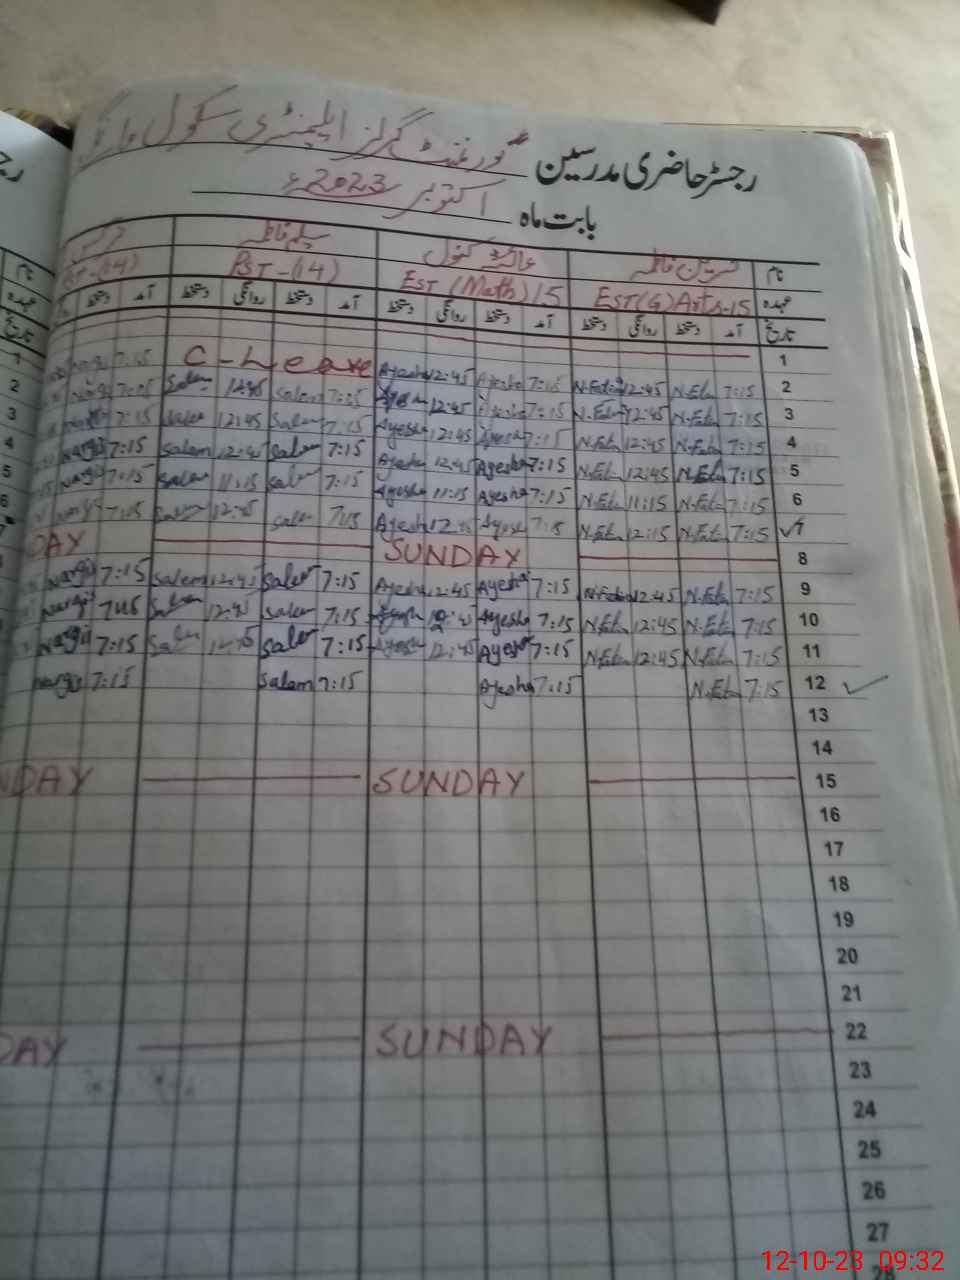 رجسٹر حاضری مدرسین گورنمنٹ گرلز ایلیمنٹری سکول
بابت ماہ اکتوبر 2023ء
نام عائشہ کنول سلیم فاطمہ نام
عہدہ EST(G)Arts-15 EST (Math) 15 PST-(14) PST-(14) عہدہ
تاریخ آمد دستخط روانگی دستخط آمد دستخط روانگی دستخط آمد دستخط روانگی دستخط آمد دستخط تاریخ
1 C-Leave 7:15 1
2 7:15 N.Fatm 12:45 N.Fatm 7:15 Ayesha 12:45 Ayesha 7:15 Salem 12:45 Salem 7:15 Nargis 2
3 7:15 N.Fatm 12:45 N.Fatm 7:15 Ayesha 12:45 Ayesha 7:15 Salem 12:45 Salem 7:15 Nargis 3
4 7:15 N.Fatm 12:45 N.Fatm 7:15 Ayesha 12:45 Ayesha 7:15 Salem 12:45 Salem 7:15 Nargis 4
5 7:15 N.Fatm 12:45 N.Fatm 7:15 Ayesha 12:45 Ayesha 7:15 Salem 11:15 Salem 7:15 Nargis 5
6 7:15 N.Fatm 11:15 N.Fatm 7:15 Ayesha 11:15 Ayesha 7:15 Salem 12:45 Salem 7:15 Nargis 6
7 7:15 N.Fatm 12:15 N.Fatm 7:15 Ayesha 12:45 Ayesha
8 SUNDAY DAY
9 7:15 N.Fatm 12:45 N.Fatm 7:15 Ayesha 12:45 Ayesha 7:15 Salem 12:45 Salem 7:15 Nargis
10 7:15 N.Fatm 12:45 N.Fatm 7:15 Ayesha 12:45 Ayesha 7:15 Salem 12:45 Salem 7:15 Nargis
11 7:15 N.Fatm 12:45 N.Fatm 7:15 Ayesha 12:45 Ayesha 7:15 Salem 12:45 Salem 7:15 Nargis
12 7:15 N.Fatm 7:15 Ayesha 7:15 Salem 7:15 Nargis
13
14
15 SUNDAY NDAY
16
17
18
19
20
21
22 SUNDAY DAY
23
24
25
26
27
12-10-23 09:32